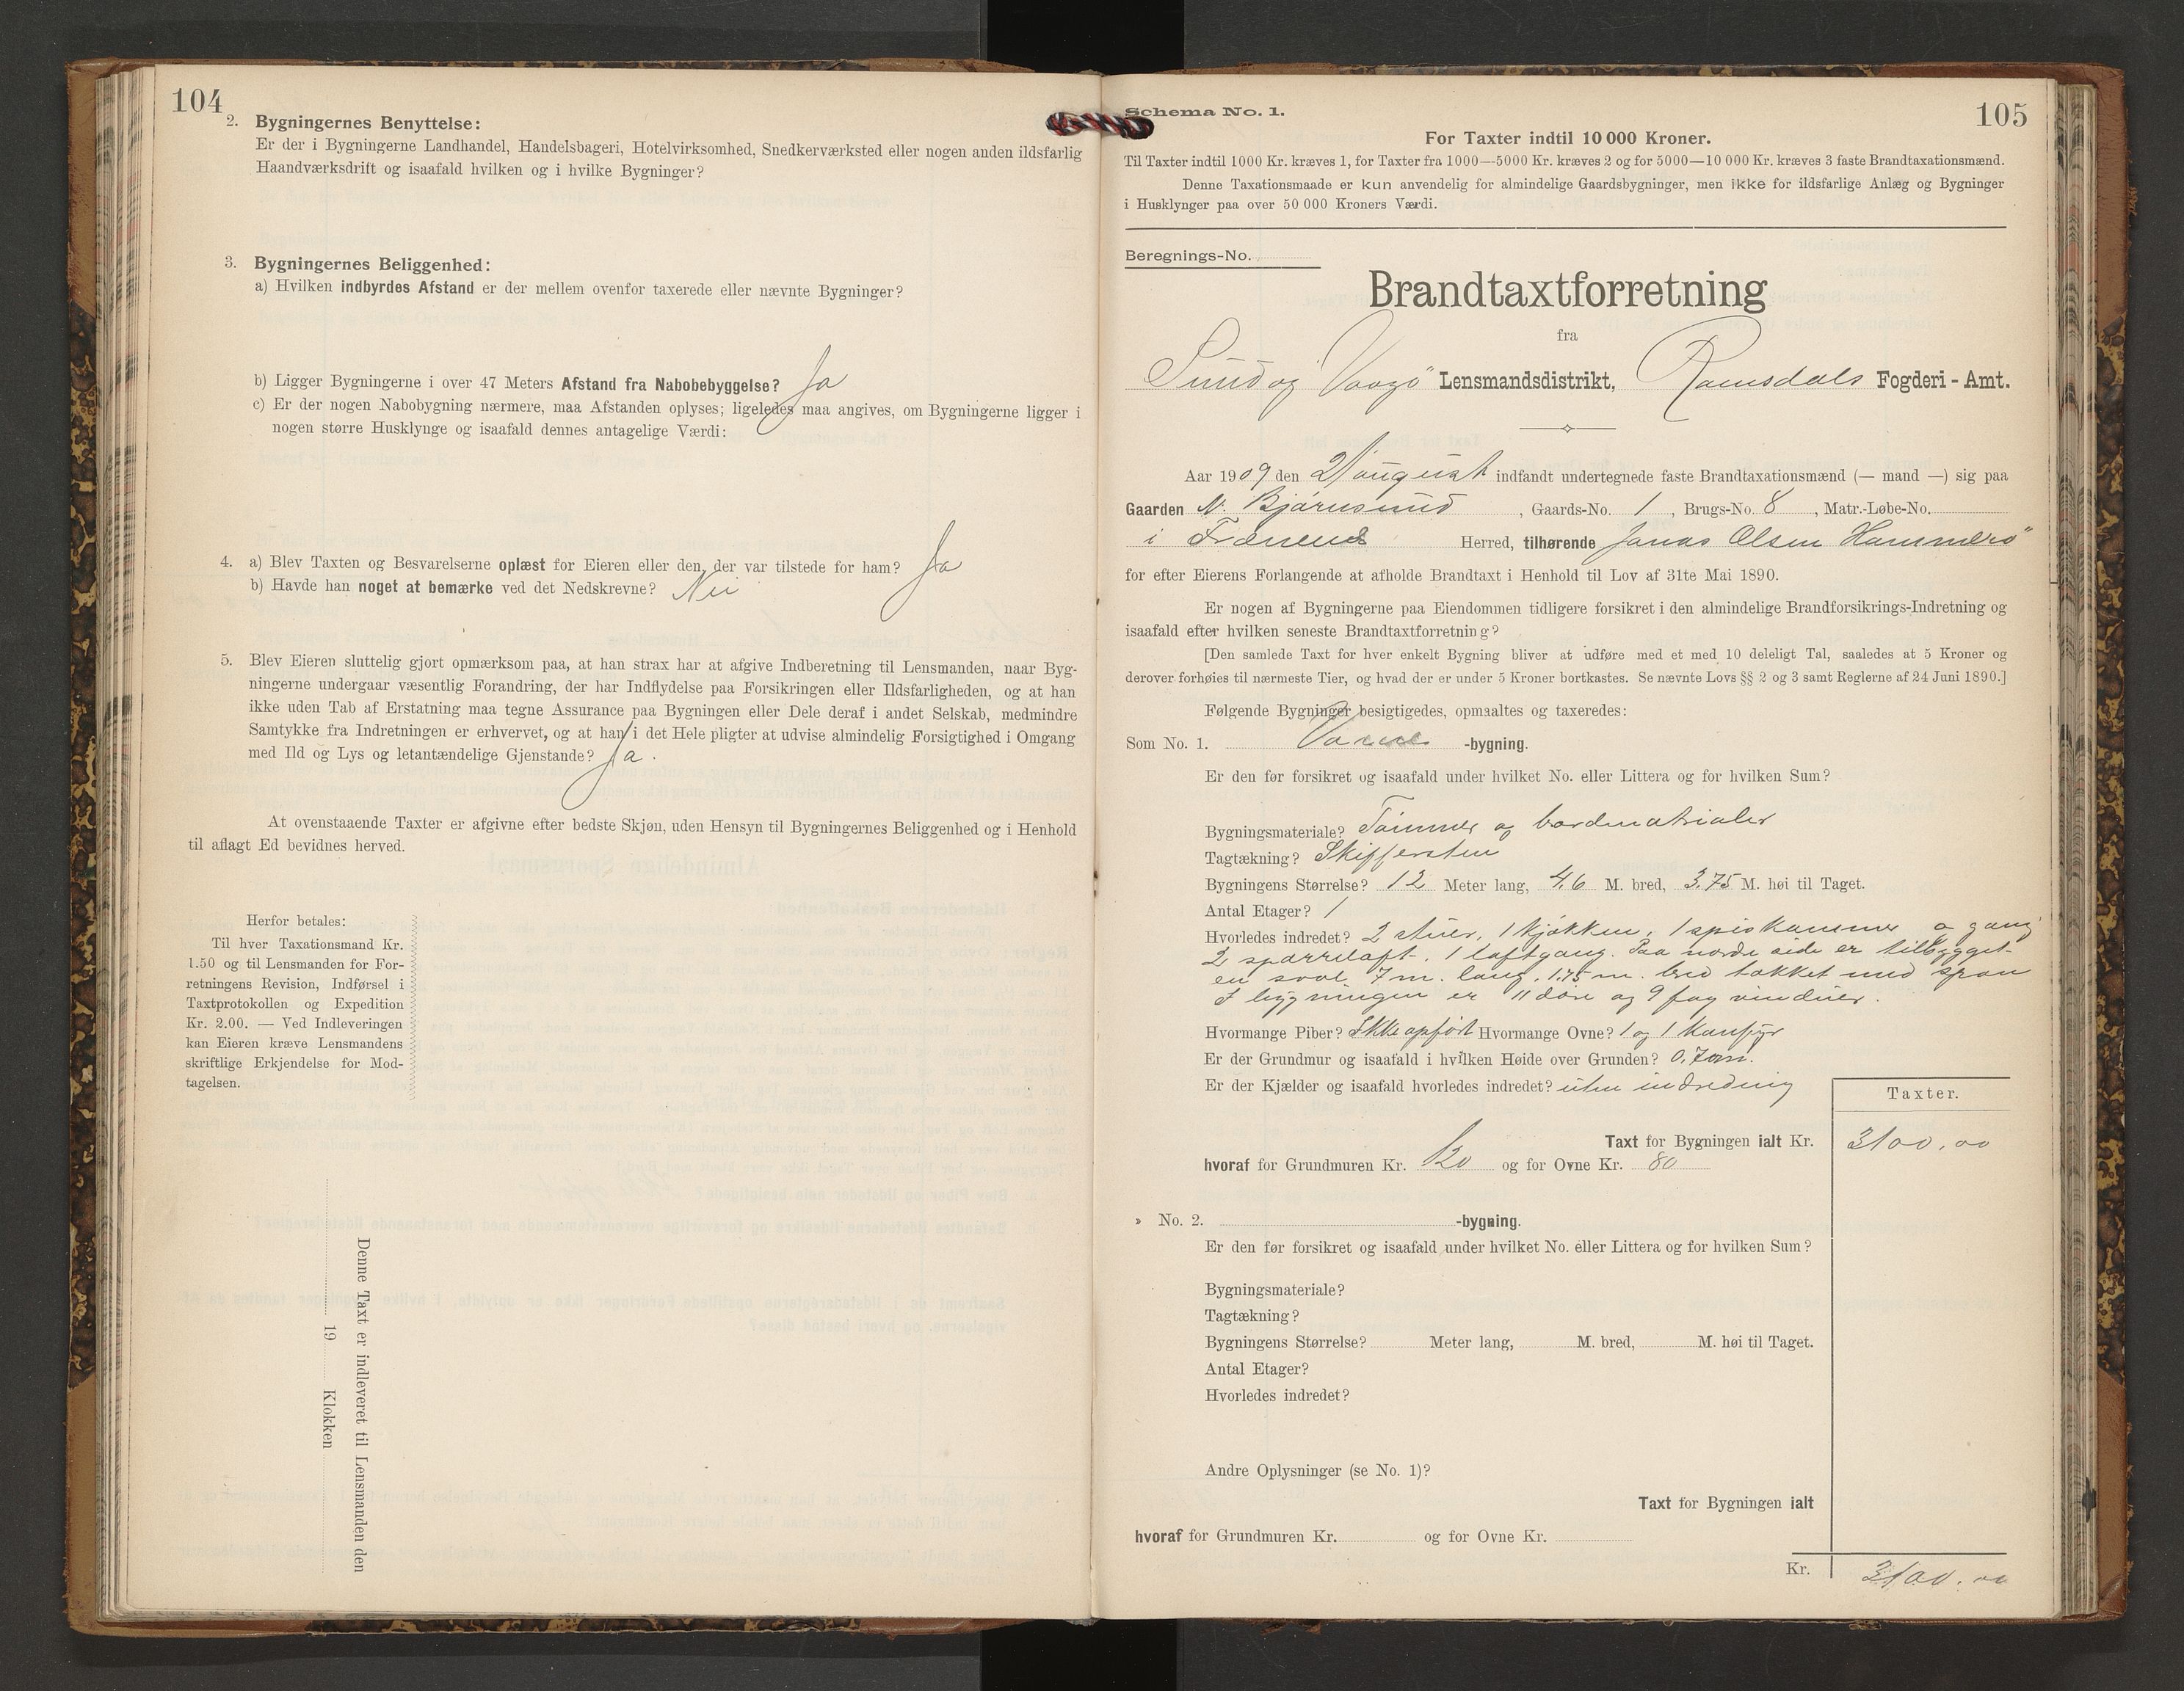 104
2. Bygningernes Benyttelse:
Er der i Bygningerne Landhandel, Handelsbageri, Hotelvirksomhed, Snedkerværksted eller nogen anden ildsfarlig
Haandværksdrift og isaafald hvilken og i hvilke Bygninger?
3. Bygningernes Beliggenhed:
a) Hvilken indbyrdes Afstand er der mellem ovenfor taxerede eller nævnte Bygninger?
b) Ligger Bygningerne i over 47 Meters Afstand fra Nabobebyggelse? Ja
c) Er der nogen Nabobygning nærmere, maa Afstanden oplyses; ligeledes maa angives, om Bygningerne ligger i
nogen større Husklynge og isaafald dennes antagelige Værdi:
4. a) Blev Taxten og Besvarelserne oplæst for Eieren eller den, der var tilstede for ham? Ja
b) Havde han noget at bemærke ved det Nedskrevne? Nei
5. Blev Eieren sluttelig gjort opmærksom paa, at han strax har at afgive Indberetning til Lensmanden, naar Byg-
ningerne undergaar væsentlig Forandring, der har Indflydelse paa Forsikringen eller Ildsfarligheden, og at han
ikke uden Tab af Erstatning maa tegne Assurance paa Bygningen eller Dele deraf i andet Selskab, medmindre
Samtykke fra Indretningen er erhvervet, og at han i det Hele pligter at udvise almindelig Forsigtighed i Omgang
med Ild og Lys og letantændelige Gjenstande? Ja.
At ovenstaaende Taxter er afgivne efter bedste Skjøn, uden Hensyn til Bygningernes Beliggenhed og i Henhold
til aflagt Ed bevidnes herved.
Herfor betales:
Til hver Taxationsmand Kr.
1.50 og til Lensmanden for For-
retningens Revision, Indførsel i
Taxtprotokollen og Expedition
Kr. 2.00. — Ved Indleveringen
kan Eieren kræve Lensmandens
skriftlige Erkjendelse for Mod-
tagelsen.
Denne Taxt er indleveret til Lensmanden den
19 Klokken
105
Schema No. 1.
For Taxter indtil 10 000 Kroner.
Til Taxter indtil 1000 Kr. kræves 1, for Taxter fra 1000—5000 Kr. kræves 2 og for 5000—10 000 Kr. kræves 3 faste Brandtaxationsmænd.
Denne Taxationsmaade er kun anvendelig for almindelige Gaardsbygninger, men ikke for ildsfarlige Anlæg og Bygninger
i Husklynger paa over 50 000 Kroners Værdi.
Beregnings-No.
Brandtaxtforretning
fra
Sund og Vaagø Lensmandsdistrikt, Romsdals Fogderi - Amt.
Aar 1909 den 2 august indfandt undertegnede faste Brandtaxationsmænd (— mand —) sig paa
Gaarden N. Bjørnsund, Gaards-No. 1, Brugs-No. 8, Matr.-Løbe-No.
i Frænen Herred, tilhørende Jonas Olsen Hammerø
for efter Eierens Forlangende at afholde Brandtaxt i Henhold til Lov af 31te Mai 1890.
Er nogen af Bygningerne paa Eiendommen tidligere forsikret i den almindelige Brandforsikrings-Indretning og
isaafald efter hvilken seneste Brandtaxtforretning?
[Den samlede Taxt for hver enkelt Bygning bliver at udføre med et med 10 deleligt Tal, saaledes at 5 Kroner og
derover forhøies til nærmeste Tier, og hvad der er under 5 Kroner bortkastes. Se nævnte Lovs §§ 2 og 3 samt Reglerne af 24 Juni 1890.]
Følgende Bygninger besigtigedes, opmaaltes og taxeredes:
Som No. 1. -bygning.
Er den før forsikret og isaafald under hvilket No. eller Littera og for hvilken Sum?
Bygningsmateriale? Tømmer og bordmatrialer
Tagtækning? Skiffersten
Bygningens Størrelse? 12 Meter lang, 4.6 M. bred, 3.75 M. høi til Taget.
Antal Etager? 1
Hvorledes indredet? 2 stuer, 1 kjøkken, 1 spiskammer o gang
2 sparreloft, 1 loftgang. Paa nordr side er tilbygget
en sval 7 m. lang, 1.75 m. bred takket med spon
I bygningen er 11 døre og 9 fag vinduer.
Hvormange Piber? Ikke opført Hvormange Ovne? 1 og 1 komfyr
Er der Grundmur og isaafald i hvilken Høide over Grunden? 0.7 m.
Er der Kjælder og isaafald hvorledes indredet? uten indredning
Taxter.
Taxt for Bygningen ialt Kr. 3100,00
hvoraf for Grundmuren Kr. 120 og for Ovne Kr. 80
» No. 2. -bygning.
Er den før forsikret og isaafald under hvilket No. eller Littera og for hvilken Sum?
Bygningsmateriale?
Tagtækning?
Bygningens Størrelse? Meter lang, M. bred, M. høi til Taget.
Antal Etager?
Hvorledes indredet?
Andre Oplysninger (se No. 1)?
Taxt for Bygningen ialt
hvoraf for Grundmuren Kr. og for Ovne Kr.
Kr. 3100,00